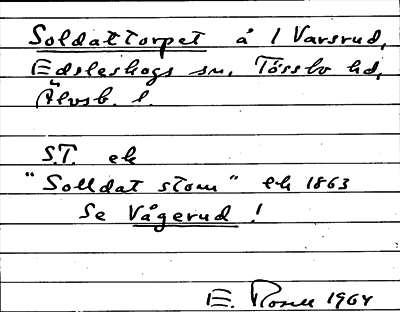 Soldattorpet å 1 Varsrud,
Edsleskogs sn, Tössbo hd,
Älvsb. l.
S.T. ek
"Solldat stom" ek 1863
Se Vågerud !
E. Rosell 1964